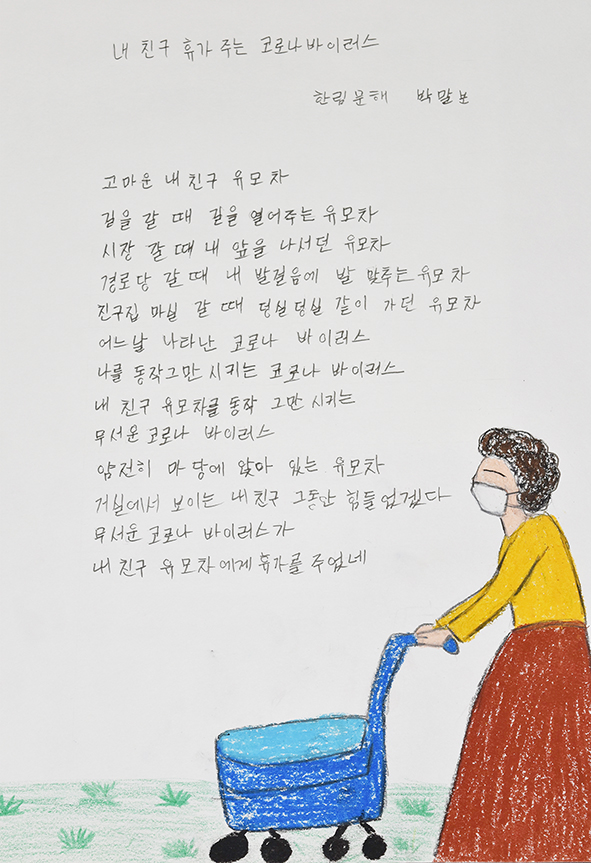 내 친구 휴가 주는 코로나 바이러스
한림문해 박말보
고마운 내 친구 유모차
길을 갈 때 길을 열어주는 유모차
시장 갈 때 내 앞을 나서던 유모차
경로당 갈 때 내 발걸음에 발 맞추는 유모차
친구집 마실 갈 때 덩실덩실 같이 가던 유모차
어느날 나타난 코로나 바이러스
나를 동작그만 시키는 코로나 바이러스
내 친구 유모차를 동작 그만 시키는
무서운 코로나 바이러스
얌전히 마당에 앉아 있는 유모차
거실에서 보이는 내 친구 그동안 힘들었겠다
무서운 코로나 바이러스가
내 친구 유모차에게 휴가를 주었네